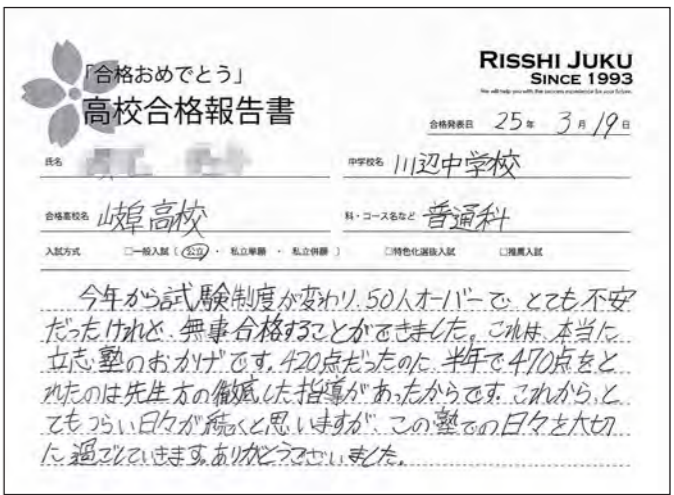 「合格おめでとう」
高校合格報告書
RISSHI JUKU
SINCE 1993
合格発表日 25年 3月 19日
氏名
中学校名 川辺中学校
合格高校名 岐阜高校
科・コース名など 普通科
入試方式 □一般入試〔 公立 ・ 私立単願 ・ 私立併願 〕 □特色化選抜入試 □推薦入試
今年から試験制度が変わり、50人オーバーで、とても不安
だったけれど、無事合格することができました。これは、本当に
立志塾のおかげです。420点だったのに、半年で470点をと
れたのは先生方の徹底した指導があったからです。これから、と
てもつらい日々が続くと思いますが、この塾での日々を大切
に過ごしていきます。ありがとうございました。